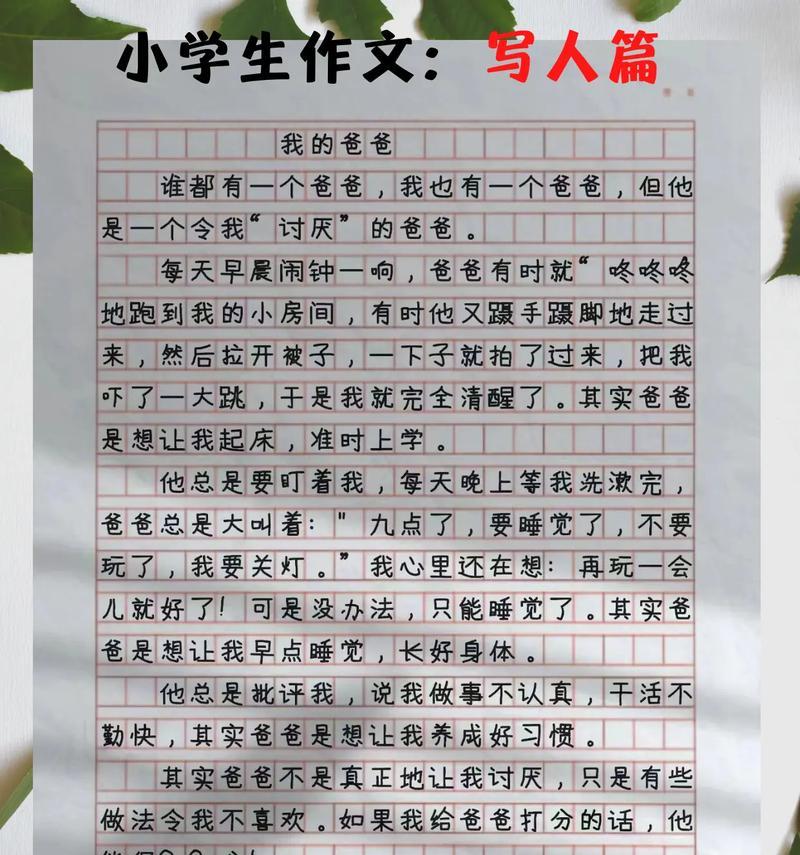 小学生作文：写人篇
我的爸爸
谁都有一个爸爸，我也有一个爸爸，但他
是一个令我“讨厌”的爸爸。
每天早晨闹钟一响，爸爸有时就“咚咚咚
地跑到我的小房间，有时他又蹑手蹑脚地走过
来，然后拉开被子，一下子就拍了过来，把我
吓了一大跳，于是我就完全清醒了。其实爸爸
是想让我起床，准时上学。
他总是要盯着我，每天晚上等我洗漱完，
爸爸总是大叫着："九点了，要睡觉了，不要
玩了，我要关灯。”我心里还在想：再玩一会
儿就好了！可是没办法，只能睡觉了。其实爸
爸是想让我早点睡觉，长好身体。
他总是批评我，说我做事不认真，干活不
勤快，其实爸爸是想让我养成好习惯。
其实爸爸不是真正地让我讨厌，只是有些
做法令我不喜欢。如果我给爸爸打分的话，他